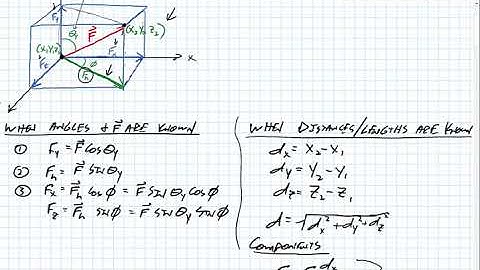 F_y
θ_y
F⃗
(X₂ Y₂ Z₂)
(X₁Y₁Z₁)
F_x
X
F_z
φ
F_h
WHEN ANGLES & F⃗ ARE KNOWN
① F_y = F⃗ cos θ_y
② F_h = F⃗ sin θ_y
③ F_x = F⃗_h cos φ = F⃗ sin θ_y cos φ
F_z = F⃗_h sin φ = F⃗ sin θ_y sin φ
WHEN DISTANCES/LENGTHS ARE KNOWN
d_x = X₂ - X₁
d_y = Y₂ - Y₁
d_z = Z₂ - Z₁
d = √(d_x² + d_y² + d_z²)
COMPONENTS
d_x